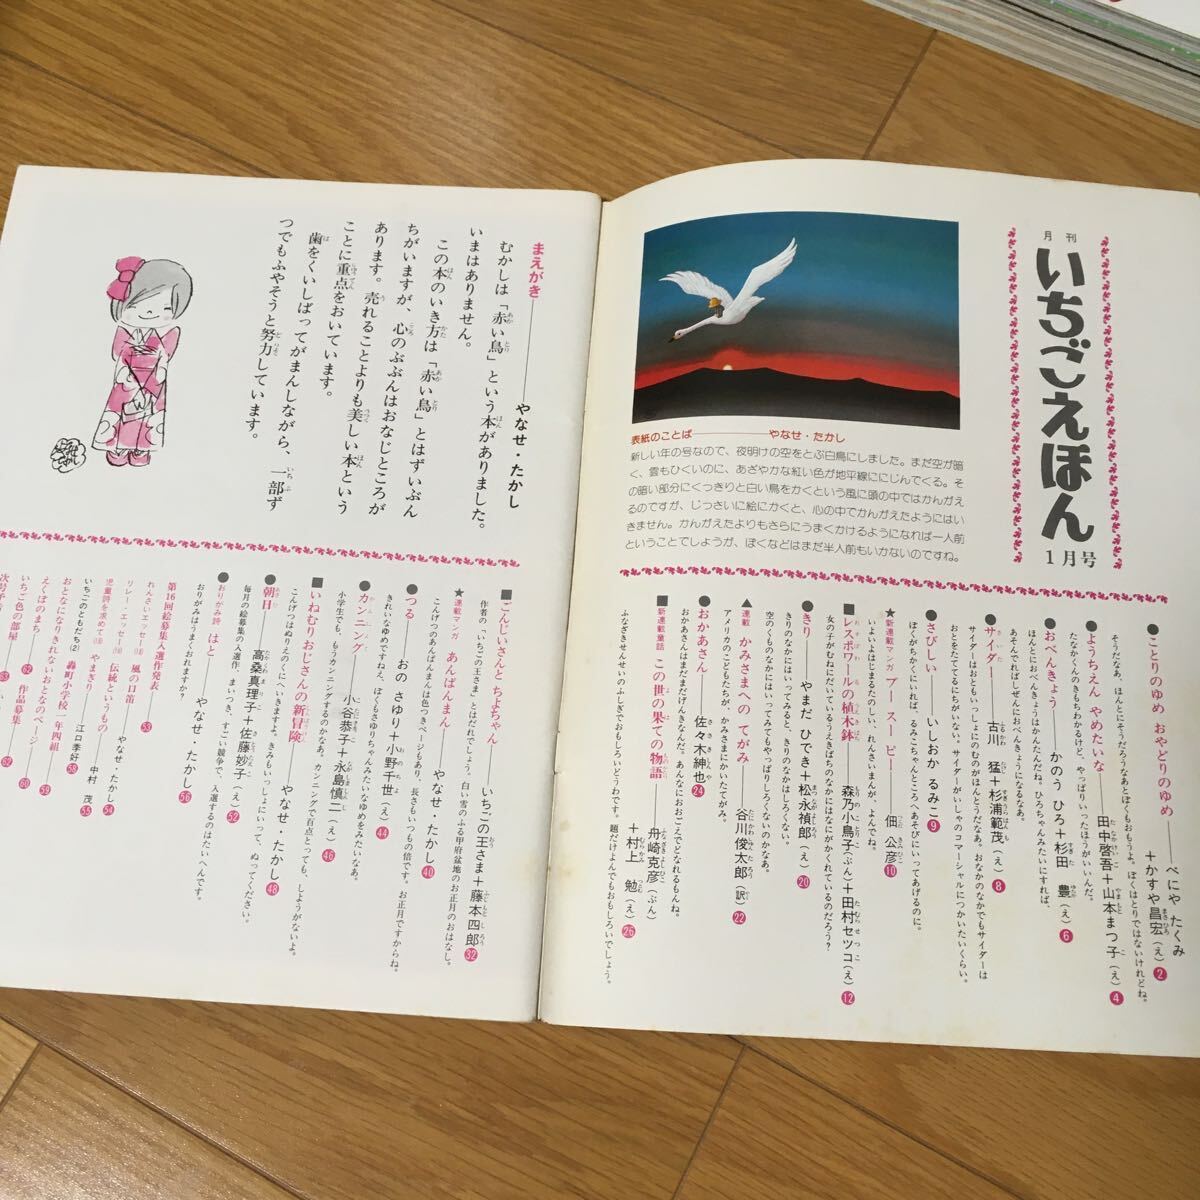 月刊
いちごえほん
1月号
表紙のことば――――やなせ・たかし
新しい年の号なので、夜明けの空をとぶ白鳥にしました。まだ空が暗
く、雲もひくいのに、あざやかな紅い色が地平線ににじんでくる。そ
の暗い部分にくっきりと白い鳥をかくという風に頭の中ではかんがえ
るのですが、じっさいに絵にかくと、心の中でかんがえたようにはい
きません。かんがえたよりもさらにうまくかけるようになれば一人前
ということでしょうが、ぼくなどはまだ半人前もいかないのですね。
●ことりのゆめ おやどりのゆめ――べにや たくみ
+かすや昌宏(え)2
そうだなあ、ほんとにそうだろうなあとぼくもおもうよ。ぼくはとりではないけれどね。
●ようちえん やめたいな
田中啓吾+山本まつ子(え)4
たなかくんのきもちわかるけど、やっぱりいったほうがいいんだ。
●おべんきょう――かのう ひろ+杉田 豊(え)6
ほんとにおべんきょうはかんたんだね。ひろちゃんみたいにすれば、
あそんでればしぜんにおべんきょうになるなあ。
●サイダー――古川 猛+杉浦範茂(え)8
サイダーはおともいっしょにのむのがほんとうだなあ。おなかのなかでもサイダーは
おとをたててるにちがいない。サイダーがいしゃのコマーシャルにつかいたいくらい。
●さびしい――いしおか るみこ9
ぼくがちかくにいれば、るみこちゃんところへ、あそびにいってあげるのに。
★新連載マンガ プー スー ピー――佃 公彦10
いよいよはじまるたのしい、れんさいまんが、よんでね。
■レスポワールの植木鉢――森乃小鳥子(ぶん)+田村セツコ(え)12
女の子がむねにだいているうえきばちのなかにはなにがかくれているのだろう?
●きり――やまだ ひでき+松永禎郎(え)20
きりのなかにはいってみると、きりのなかはしろくない。
空のくものなかにはいってみてもやっぱりしろくないのかなあ。
▲連載 かみさまへの てがみ――谷川俊太郎(訳)22
アメリカのこどもたちが、かみさまにかいたてがみ。
●おかあさん――佐々木紳也24
おかあさんはまだまだげんきなんだ。あんなにおおごえでどなれるもんね。
■新連載童話 この世の果ての物語――舟崎克彦(ぶん)
+村上 勉(え)26
ふなざきせんせいのふしぎでおもしろいどうわです。題だけよんでもおもしろいでしょう。
まえがき――――やなせ・たかし
むかしは「赤い鳥」という本がありました。
いまはありません。
この本のいき方は「赤い鳥」とはずいぶん
ちがいますが、心のぶぶんはおなじところが
あります。売れることよりも美しい本という
ことに重点をおいています。
歯をくいしばってがまんしながら、一部ず
つでもふやそうと努力しています。
■ごんじいさんと ちよちゃん――いちごの王さま+藤本四郎32
作者の「いちごの王さま」とはだれでしょう。白い雪のふる甲府盆地のお正月のおはなし。
★連載マンガ あんぱんまん――やなせ・たかし40
こんげつのあんぱんまんは色つきページもあり、長さもいつもの倍です。お正月ですからね。
●つる――おの さゆり+小野千世(え)44
きれいなゆめですねえ、ぼくもさゆりちゃんみたいなゆめをみたいなあ。
●カンニング――小谷恭子+永島慎二(え)46
小学生でも、もうカンニングするのかなあ。カンニングで百点とっても、しようがないよ。
■いねむりおじさんの新冒険――やなせ・たかし48
こんげつはぬりえのくにへいきますよ。きみもいっしょにいって、ぬってください。
●朝日――高桑真理子+佐藤妙子(え)52
毎月の絵募集の入選作、まいつき、すごい競争で、入選するのはたいへんです。
●おりがみ詩 はと――やなせ・たかし56
おりがみはうまくおれますか?
第16回絵募集入選作発表――53
れんさいエッセー 風の口笛――やなせ・たかし54
リレー・エッセー 伝統というもの――中村 茂55
児童詩を求めて やまぎり――江口季好58
いちごのともだち(2) 轟町小学校一年四組59
おとなになりきれないおとなのページ――60
えくぼのまち――62 作品募集――62
いちご色の部屋――63